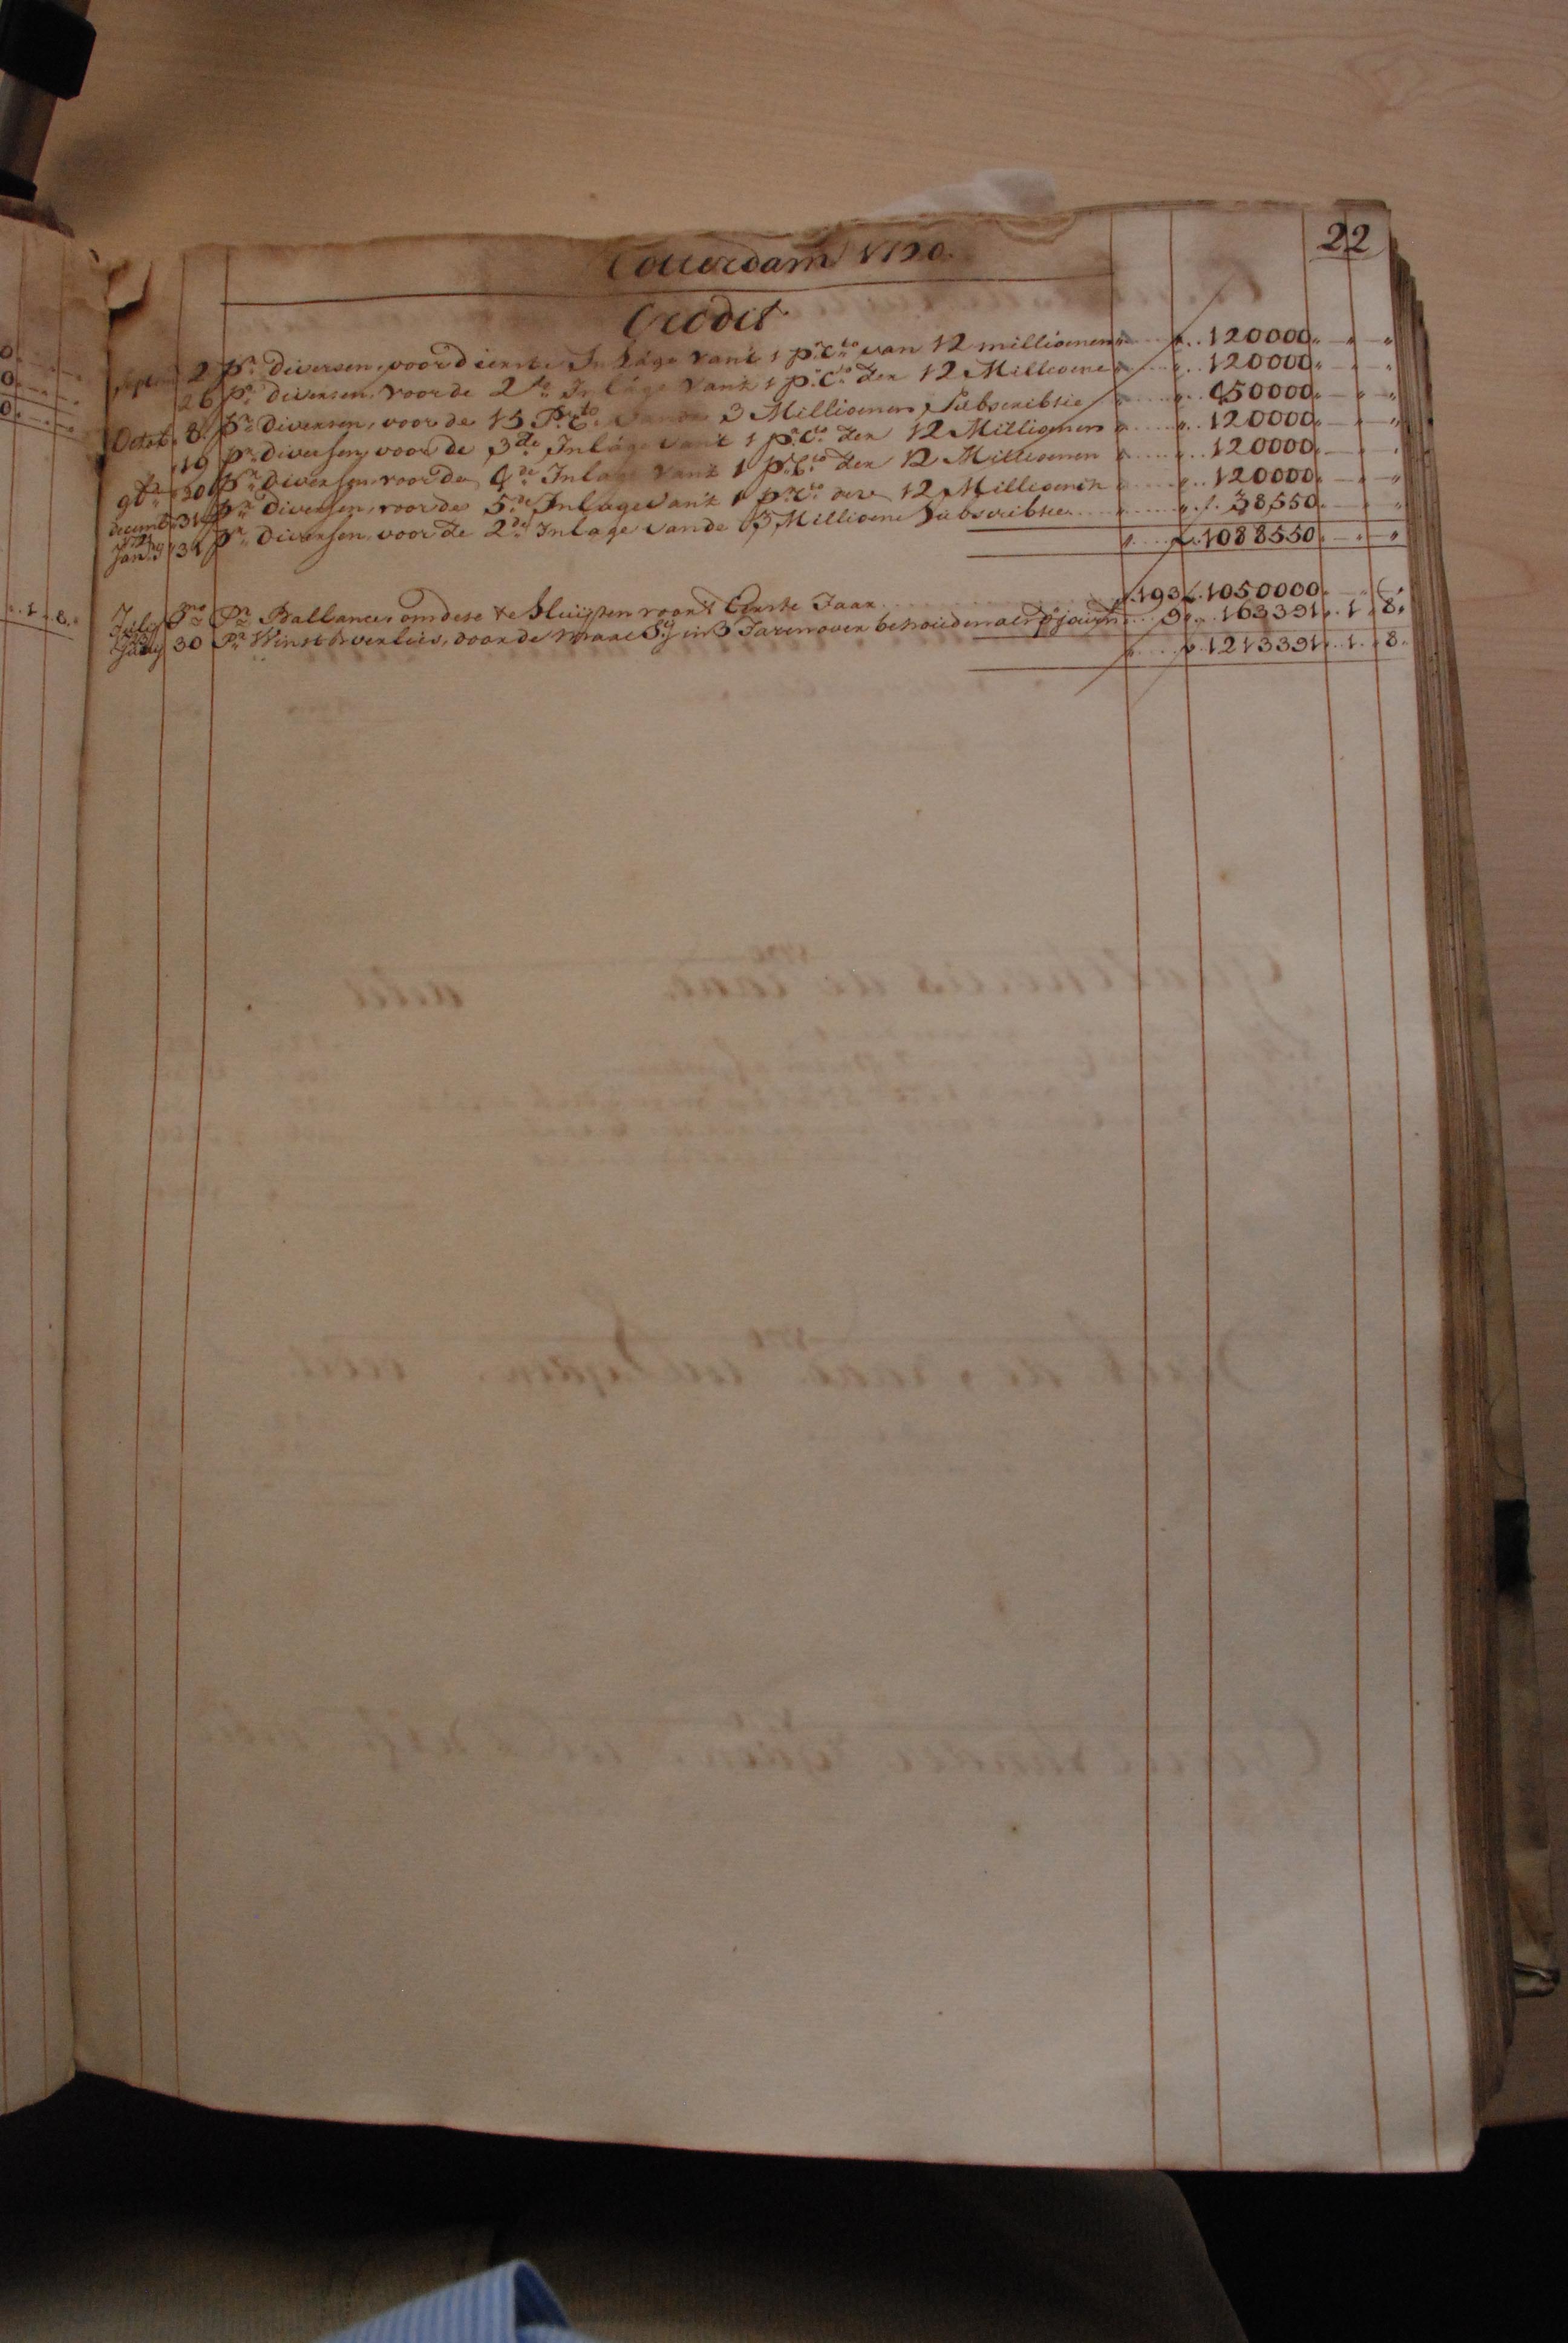 22
Rotterdam 1720.
Credit
Septem 2 Pr. diversen, voor d'eerste Inlage van't 1 p.r C.to van 12 millioenen " 120000 " — " — "
26 Pr. diversen, voor de 2de Inlage vant 1 p.r C.to der 12 Millioene " 120000 " — " — "
Octob. 8 Pr. diversen, voor de 15 P.r C.to vande 3 Millioenen Subscribtie " 450000 " — " — "
19 Pr. diversen, voor de 3de Inlage vant 1 p.r C.to der 12 Millioenen " 120000 " — " — "
9br. 30 Pr. diversen, voor de 4de Inlage vant 1 p.r C.to der 12 Millioenen " 120000 " — " — "
decemb. 31 Pr. diversen, voor de 5de Inlage vant 1 p.r C.to der 12 Millioenen " 120000 " — " — "
Jan. 31 Pr. diversen, voor de 2de Inlage vande 3 Millioene Subscribtie " f 38550 " — " — "
f 1088550 " — " — "
July Pr. Ballance, om dese te sluijten voor't Eerste Jaar 193 f 1050000 " — " — "
30 Pr. Winst & verlies, voor de 9 " 163391 " 1 " 8 "
" 1213391 " 1 " 8 "
1 " 8 "